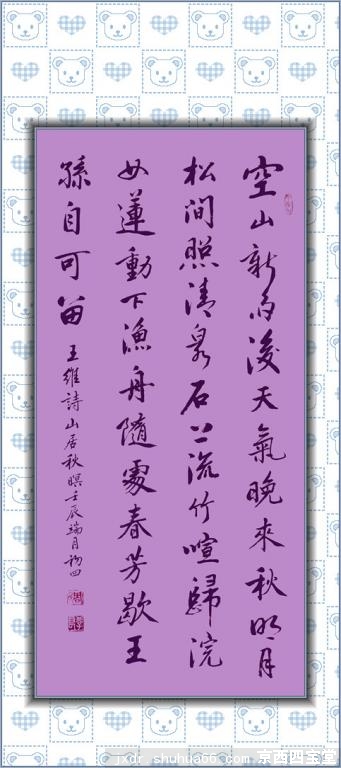 空山新雨後天氣晚來秋明月
松間照清泉石上流竹喧歸浣
女蓮動下漁舟隨處春芳歇王
孫自可留
王維詩山居秋暝壬辰端月初四
jxdr.shuhua66.com 京西四宝堂